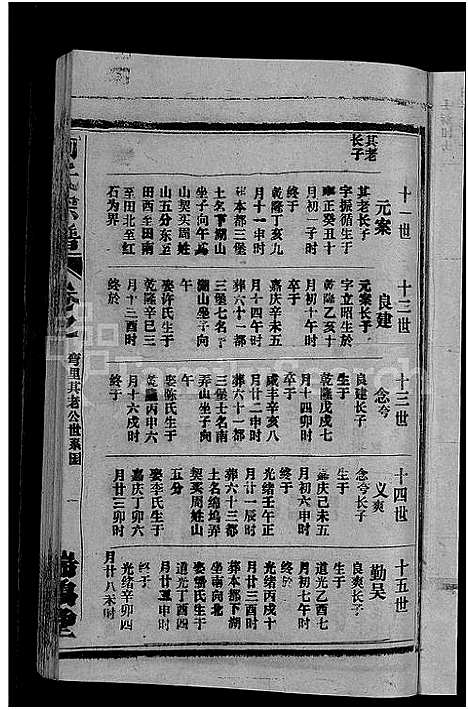 其老
长子
十一世
元案
其老长子
字振循生于
雍正癸丑十
月初一子时
终于
乾隆丁亥九
月十一申时
葬本都三堡
土名下湖山
坐子向午
山契买周姓
山五分东至
田西至田南
至田北至红
石为界
十三世
良建
元案长子
字立昭生於
乾隆乙亥十
月初十午时
卒于
嘉庆辛未五
月十四午时
葬六十一都
三堡七名南
湖山坐子向
午
娶许氏生于
乾隆辛巳三
月十三酉时
终於
十三世
念兮
良建长子
生于
乾隆戊戌七
月十四卯时
卒于
咸丰辛亥八
月廿二申时
葬六十一都
三堡土名南
弄山坐子向
午
娶陈氏生于
乾隆丙申六
月十六戌时
终于
十四世
义爽
念兮长子
生于
嘉庆己未五
月初六申时
终于
光绪壬午正
月廿一辰时
葬六十三都
土名绵坞弄
契买周姓山
五分
娶李氏生于
嘉庆丁卯六
月廿三卯时
十五世
勤吴
良爽长子
生于
道光乙酉七
月初七午时
终於
光绪丙戌十
月廿三午时
葬本都下湖
坐南向北
娶潘氏生于
道光丁酉四
月廿五申时
终于
光绪辛卯四
月廿八未时
卷之
弯里其老公世系图
一